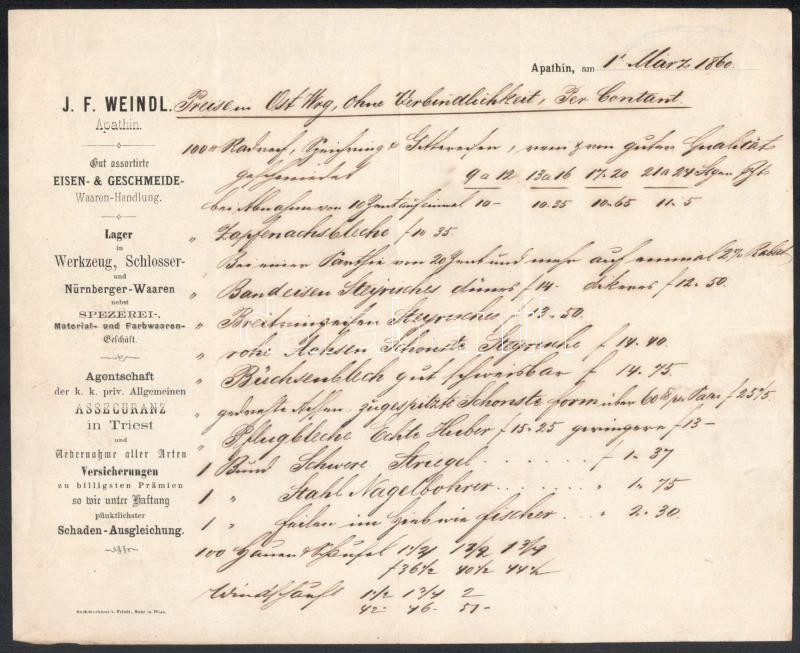 Apathin, am 1t März 1860.
J. F. WEINDL.
Apathin.
Gut assortirte
EISEN- & GESCHMEIDE-
Waaren-Handlung.
Lager
in
Werkzeug, Schlosser-
und
Nürnberger-Waaren
nebst
SPEZEREI-,
Material- und Farbwaaren-
Geschäft.
Agentschaft
der k. k. priv. Allgemeinen
ASSECURANZ
in Triest
und
Uebernahme aller Arten
Versicherungen
zu billigsten Prämien
so wie unter Haftung
pünktlichster
Schaden-Ausgleichung.
Preise in Ost Wrg, ohne Verbindlichkeit, Per Contant.
100 " Radreif, & Gittereisen, von guter Qualität
geschmiedet 9 a 12 13 a 16 17-20 21 a 24
bei Abnahme von 10 Zent auf einmal 10- 10.35 10-65 11-5
" f 10 35
Bei einer Parthie von 20 Zent und mehr auf einmal 2% Rabat
" Bandeisen Steyrisches dünes f 14- dikeres f 12-50.
" Steyrisches f 13-50.
" rohe Achsen Schönste Steyrische f 14-40.
" Büchsenblech gut schweisbar f 14-75
" gedrehte Achsen zugespitzte Schönste form über 60 Paar f 25
" Pflugbleche Echte Huber f 15-25 geringere f 13-
1 Bund Schwere Striegel f 1-37
1 " Stahl Nagelbohrer " 1-75
1 " feilen im Hieb wie fischer " 2-30.
100 Hauen & Schaufel 1 1/2 1 3/4
f 36 1/2 40 1/2 44 1/2
1 1/2 1 3/4 2
42- 46- 51-